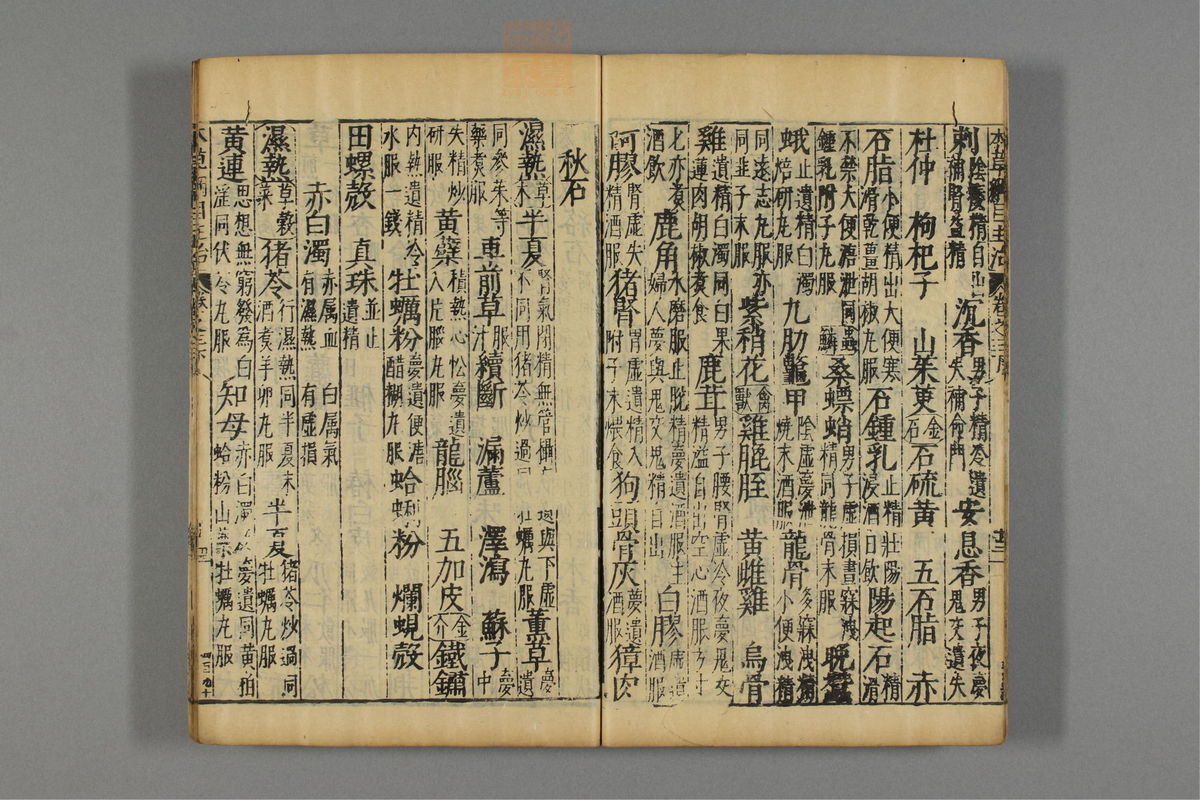 刺 陰痿精自出補腎益精 沉香 男子精冷遺失補命門 安息香 男子夜夢鬼交遺失
杜仲 枸杞子 山茱萸 金石 石硫黃 五石脂 赤
石脂 小便精出大便寒滑乾薑胡椒丸服 石鍾乳 止精壯陽浸酒日飲 陽起石 精滑
不禁大便溏泄同鍾乳附子丸服 蟲鱗 桑螵蛸 男子虛損晝寐洩精同龍骨末服 晚蠶
蛾 止遺精白濁焙研丸服 九肋鼈甲 陰虛夢泄燒末酒服 龍骨 多寐洩精小便洩精
同遠志丸服亦同韭子末服 紫稍花 禽獸 雞膍胵 黃雌雞 烏骨
雞 遺精白濁同白果蓮肉胡椒煮食 鹿茸 男子腰腎虛冷夜夢鬼交精溢自出空心酒服方寸
匕亦煮酒飲 鹿角 水磨服止脫精夢遺酒服主婦人夢與鬼交鬼精自出 白膠 虛遺酒服
阿膠 腎虛失精酒服 猪腎 腎虛遺精入附子末煨食 狗頭骨灰 酒服 獐肉
秋石
濕熱 草木 半夏 腎氣閉精無管攝妄遺與下虛不同用猪苓炒過同牡蠣丸服 薰草 夢遺
同參朮等藥煮服 車前草 汁 續斷 漏蘆 澤瀉 蘇子 夢中
失精炒研服 黃蘗 積熱心忪夢遺入片腦丸服 龍腦 五加皮 金介 鐵鏽
內熱遺精冷水服一錢 牡蠣粉 夢遺便溏醋糊丸服 蛤蜊粉 爛蜆殼
田螺殼 真珠 並止遺精
赤白濁 赤屬血白屬氣有濕熱有虛損
濕熱 草穀菜 猪苓 行濕熱同半夏末酒煮羊卵丸服 半夏 猪苓炒過同牡蠣丸服
黃連 思想無窮發為白淫同伏苓丸服 知母 赤白濁及夢遺同黃柏蛤粉山藥牡蠣丸服